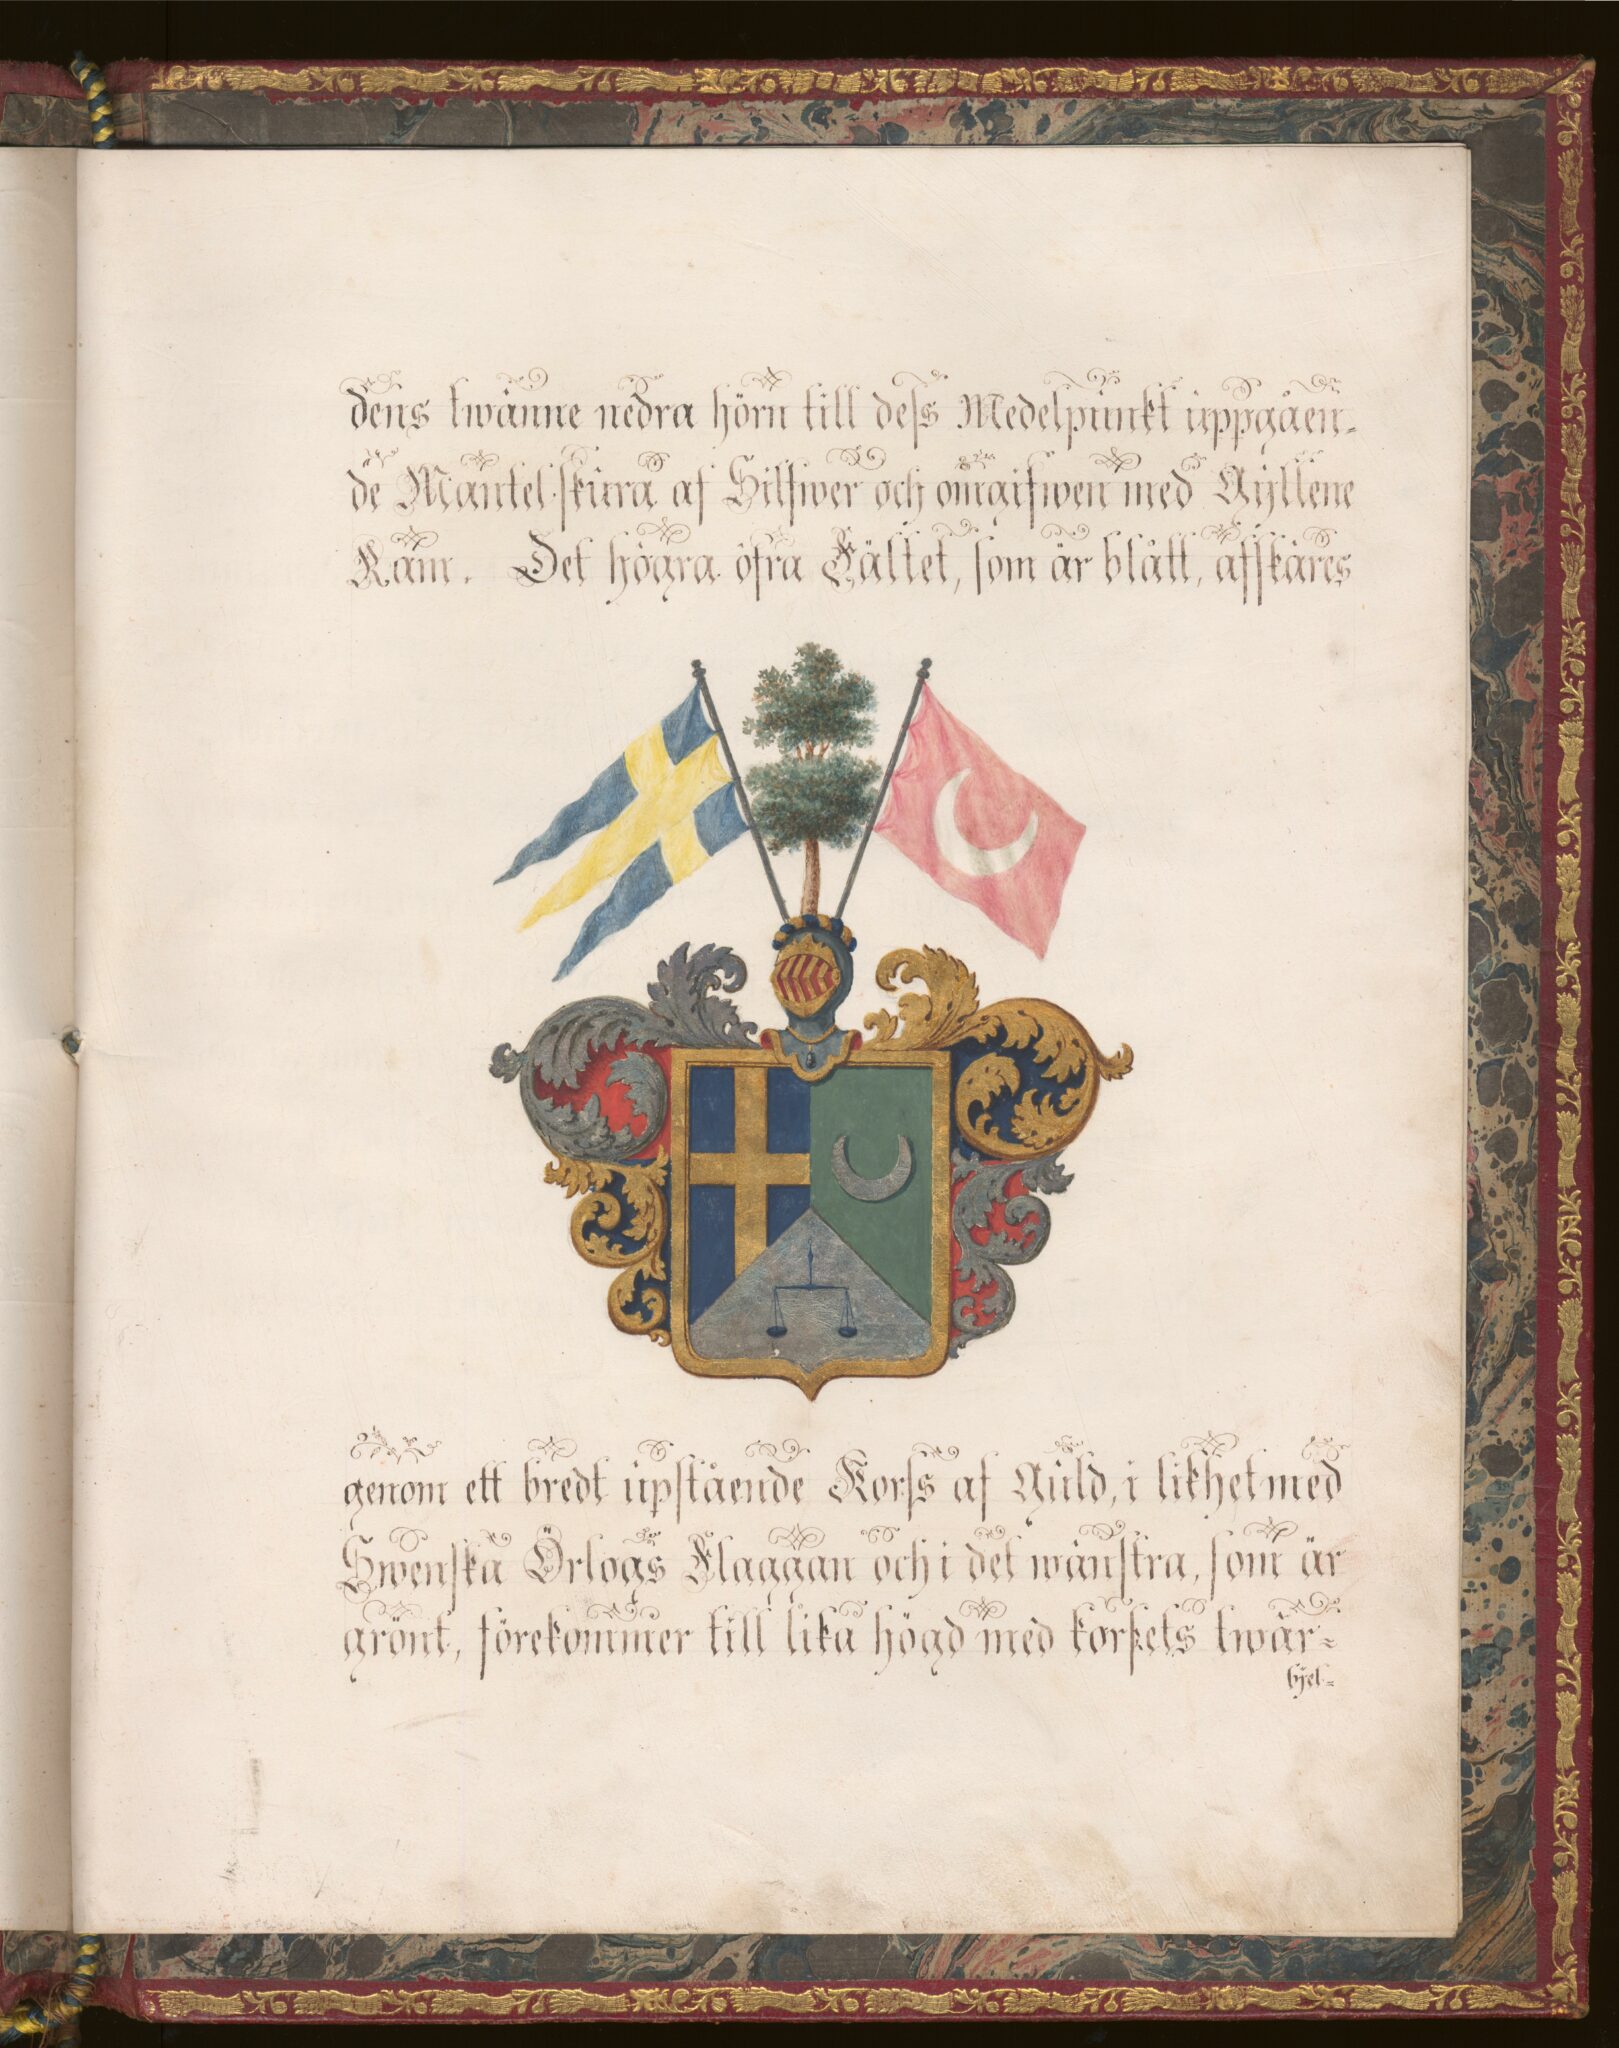 dens twänne nedra hörn till dess Medelpunkt uppgåen-
de Mantel-skura af Silfwer och omgifwen med Gyllene
Ram. Det högra öfra Fältet, som är blått, afskäres
genom ett bredt upstående Korss af Guld, i likhet med
Swenska Örlogs Flaggan och i det wänstra, som är
grönt, förekommer till lika högd med korssets twär-
bjel-